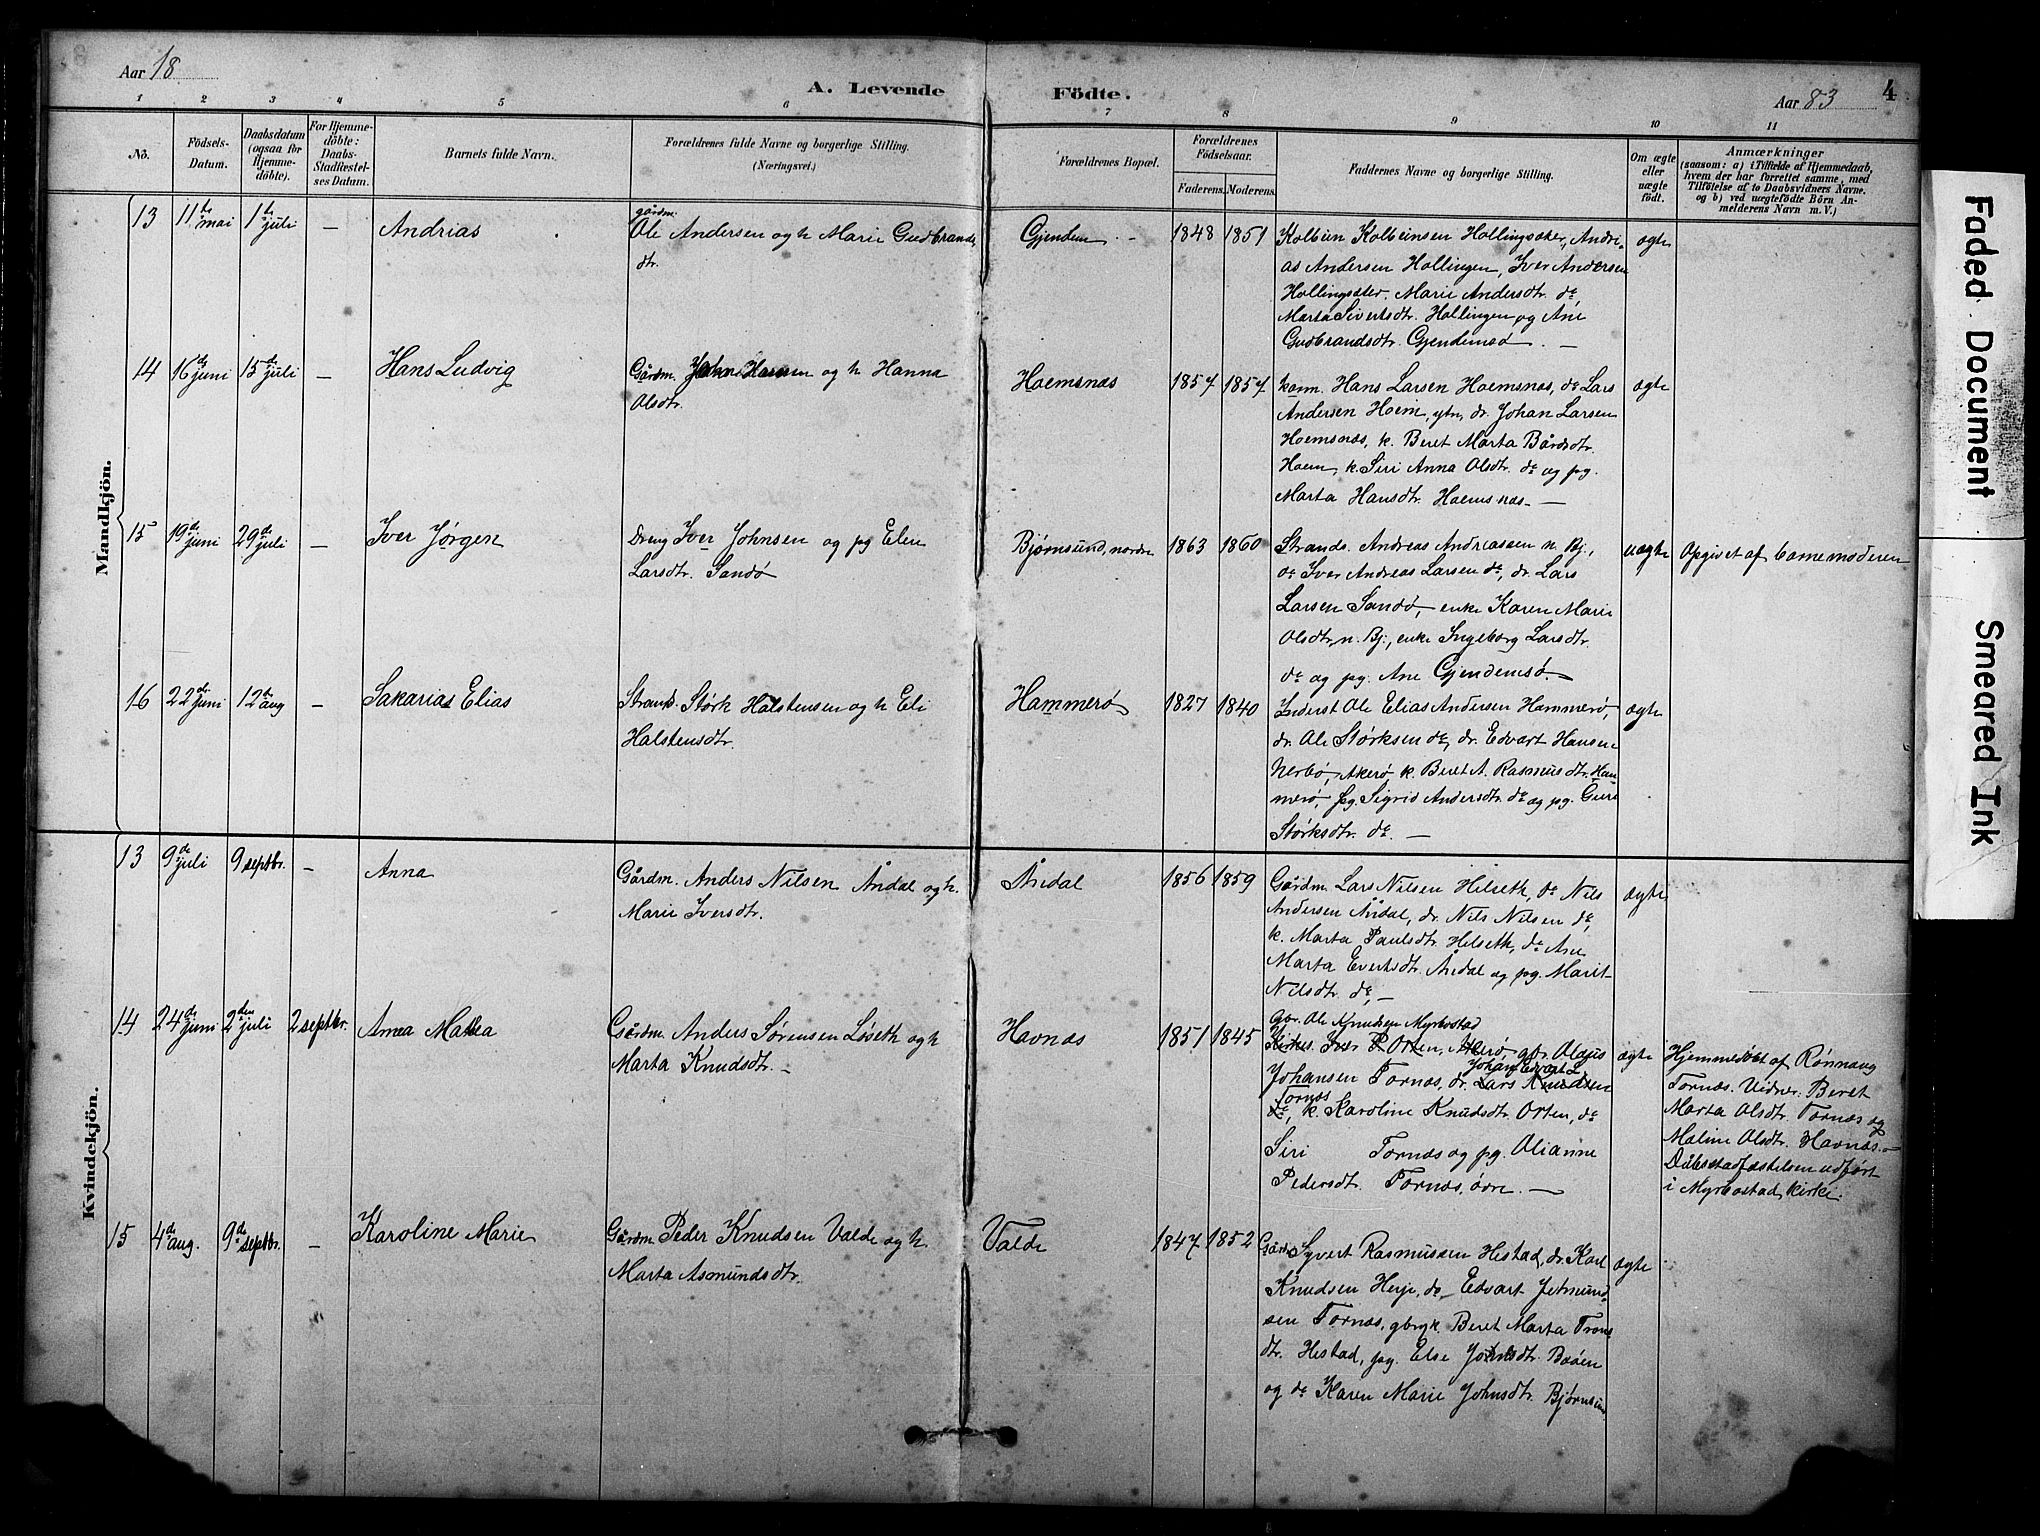 Aar 18
A. Levende Födte.
Aar 83
4
1 2 3 4 5 6 7 8 9 10 11
Nö.
Födsels-Datum.
Daabsdatum (ogsaa for Hjemme-döbte).
For Hjemme-döbte: Daabs-Stadfæstel-ses Datum.
Barnets fulde Navn.
Forældrenes fulde Navne og borgerlige Stilling. (Næringsvei.)
Forældrenes Bopæl.
Forældrenes Födselsaar.
Faderens. Moderens.
Faddernes Navne og borgerlige Stilling.
Om ægte eller uægte födt.
Anmærkninger
(saasom: a) i Tilfælde af Hjemmedaab,
hvem der har forrettet samme, med
Tilföielse af to Daabsvidners Navne,
og b) ved uægtefödte Börn An-
melderens Navn m. V.)
Mandkjön.
13 11te mai 1te juli — Andrias
gårdm.
Ole Andersen og h Marie Gudbrands
dtr.
Gjendem
1848 1851
Kolbein Kolbeinsen Hollingsæter, Andri-
as Andersen Hollingen, Iver Andersen
Hollingsæter, Marie Andersdtr. do,
Marta Sivertsdtr. Hollingen og Ane
Gudbrandsdtr. Gjendemsø. —
ægte
14 16de juni 15de juli — Hans Ludvig
Gårdm. John Hansen og h Hanna
Olsdtr.
Hoemsnæs
1857 1857
kaarm. Hans Larsen Hoemsnæs, do Lars
Andersen Hoem, ytn, dr. Johan Larsen
Hoemsnæs, k. Beret Marta Bårdsdtr.
Hoem, k. Siri Anna Olsdtr. do og pg.
Marta Hansdtr. Hoemsnæs —
ægte
15 19de juni 29de juli — Iver Jørgen
Dreng Iver Johnsen og pg Elen
Larsdtr. Sandø
Bjørnsund, nordre
1863 1860
Strands. Andreas Andreassen n. Bj.,
do Iver Andreas Larsen do, dr. Lars
Larsen Sandø, enke Karen Marie
Olsdtr. n. Bj., enke Ingeborg Larsdtr.
do og pg. Ane Gjendemsø. —
uægte
Opgivet af barnemoderen
16 22de juni 12te aug — Sakarias Elias
Strands. Størk Halstensen og h Eli
Halstensdtr.
Hammerø
1827 1840
Inderst Ole Elias Andersen Hammerø,
dr. Ole Størksen do, dr. Edvart Hansen
Nerbø, Akerø, k. Beret A. Rasmusdtr. Ham-
merø, pg. Sigrid Andersdtr. do og pg. Guri
Størksdtr. do. —
ægte
Kvindekjön.
13 9de juli 9 septbr. — Anna
Gårdm. Anders Nilsen Åndal og h.
Marie Iversdtr.
Åndal
1856 1859
Gårdm. Lars Nilsen Hilseth, do Nils
Andersen Åndal, dr. Nils Nilsen do,
k. Marta Paulsdtr. Hilseth, do Ane
Marta Evertsdtr. Åndal og pg. Marit
Nilsdtr. do, —
ægte
14 24de juni 2den juli 2 septbr. Anna Matea
Gårdm. Anders Sørensen Løseth og h
Marta Knudsdtr. —
Havnæs
1851 1845
gbr. Ole Knudsen Myrbostad
Kirkes. Iver P. Orten, Akerø, gbr. Olaus
Johansen Tornæs, dr. Lars Knudsen
Johan Edvart L.
Tornæs
do, k. Karoline Knudsdtr. Orten, do
Siri Tornæs og pg. Olianne
Pedersdt. Tornæs, øvre. —
ægte
Hjemmedøbt af Rønnaug
Tornæs. Vidner: Beret
Marta Olsdtr. Tornæs og
Maline Olsdtr. Havnæs. —
Dåbsstadfæstelsen udført
i Myrbostad kirke.
15 4de aug. 9de septbr. — Karoline Marie
Gårdm. Peder Knudsen Valde og h.
Marta Asmundsdtr.
Valde
1847 1852
Gårdm. Syvert Rasmussen Hestad, dr. Karl
Knudsen Herje, do Edvart Jetmund-
sen Tornæs, gbrgk. Beret Marta Trons
dtr. Hestad, pg. Else Johnsdtr. Baaen
og do Karen Marie Johnsdtr. Bjørnsund
ægte
Faded Document
Smeared Ink